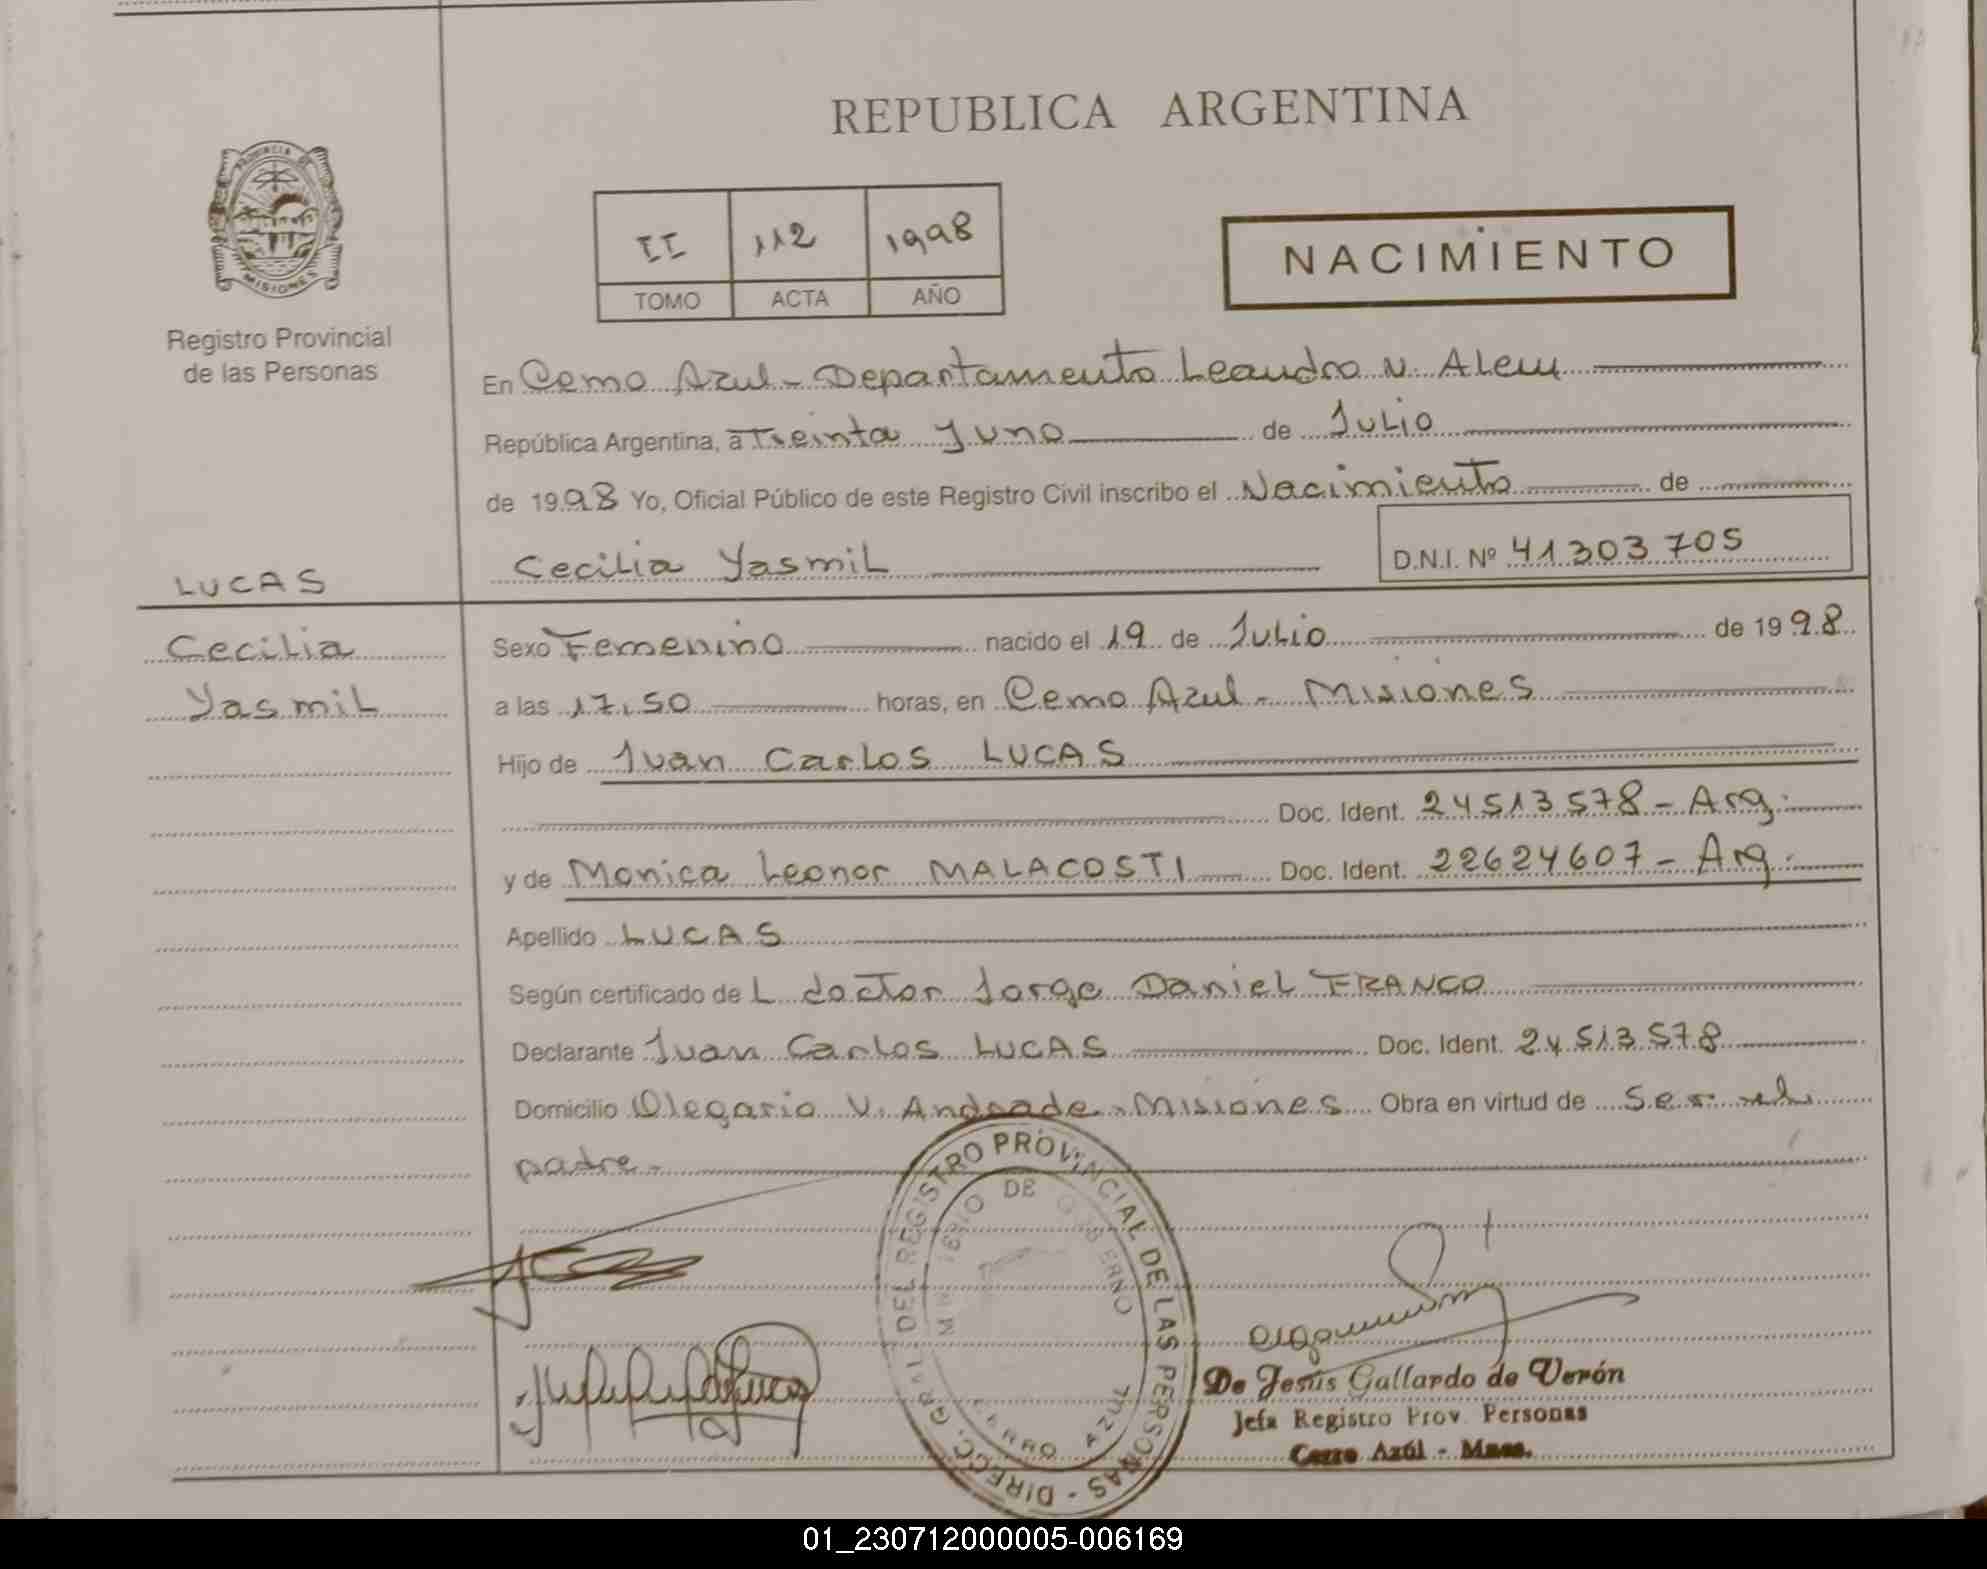 REPUBLICA ARGENTINA
PROVINCIA DE
MISIONES
Registro Provincial
de las Personas
II 112 1998
TOMO ACTA AÑO
NACIMIENTO
En Cerro Azul - Departamento Leandro N. Alem
República Argentina, a Treinta y uno de Julio
de 1998 Yo, Oficial Público de este Registro Civil inscribo el Nacimiento de
Cecilia Yasmil D.N.I. Nº 41303705
LUCAS
Cecilia
Yasmil
Sexo Femenino nacido el 19 de Julio de 1998
a las 17,50 horas, en Cerro Azul - Misiones
Hijo de Juan Carlos LUCAS
Doc. Ident. 24513578 - Arg.
y de Monica Leonor MALACOSTI Doc. Ident. 22624607 - Arg.
Apellido LUCAS
Según certificado de L doctor Jorge Daniel FRANCO
Declarante Juan Carlos LUCAS Doc. Ident. 24513578
Domicilio Olegario V. Andrade - Misiones Obra en virtud de ser el
padre -
DIRECC. GRAL. DEL REGISTRO PROVINCIAL DE LAS PERSONAS
DE GOBIERNO
CERRO AZUL
De Jesús Gallardo de Verón
Jefa Registro Prov. Personas
Cerro Azúl - Mnes.
01_230712000005-006169